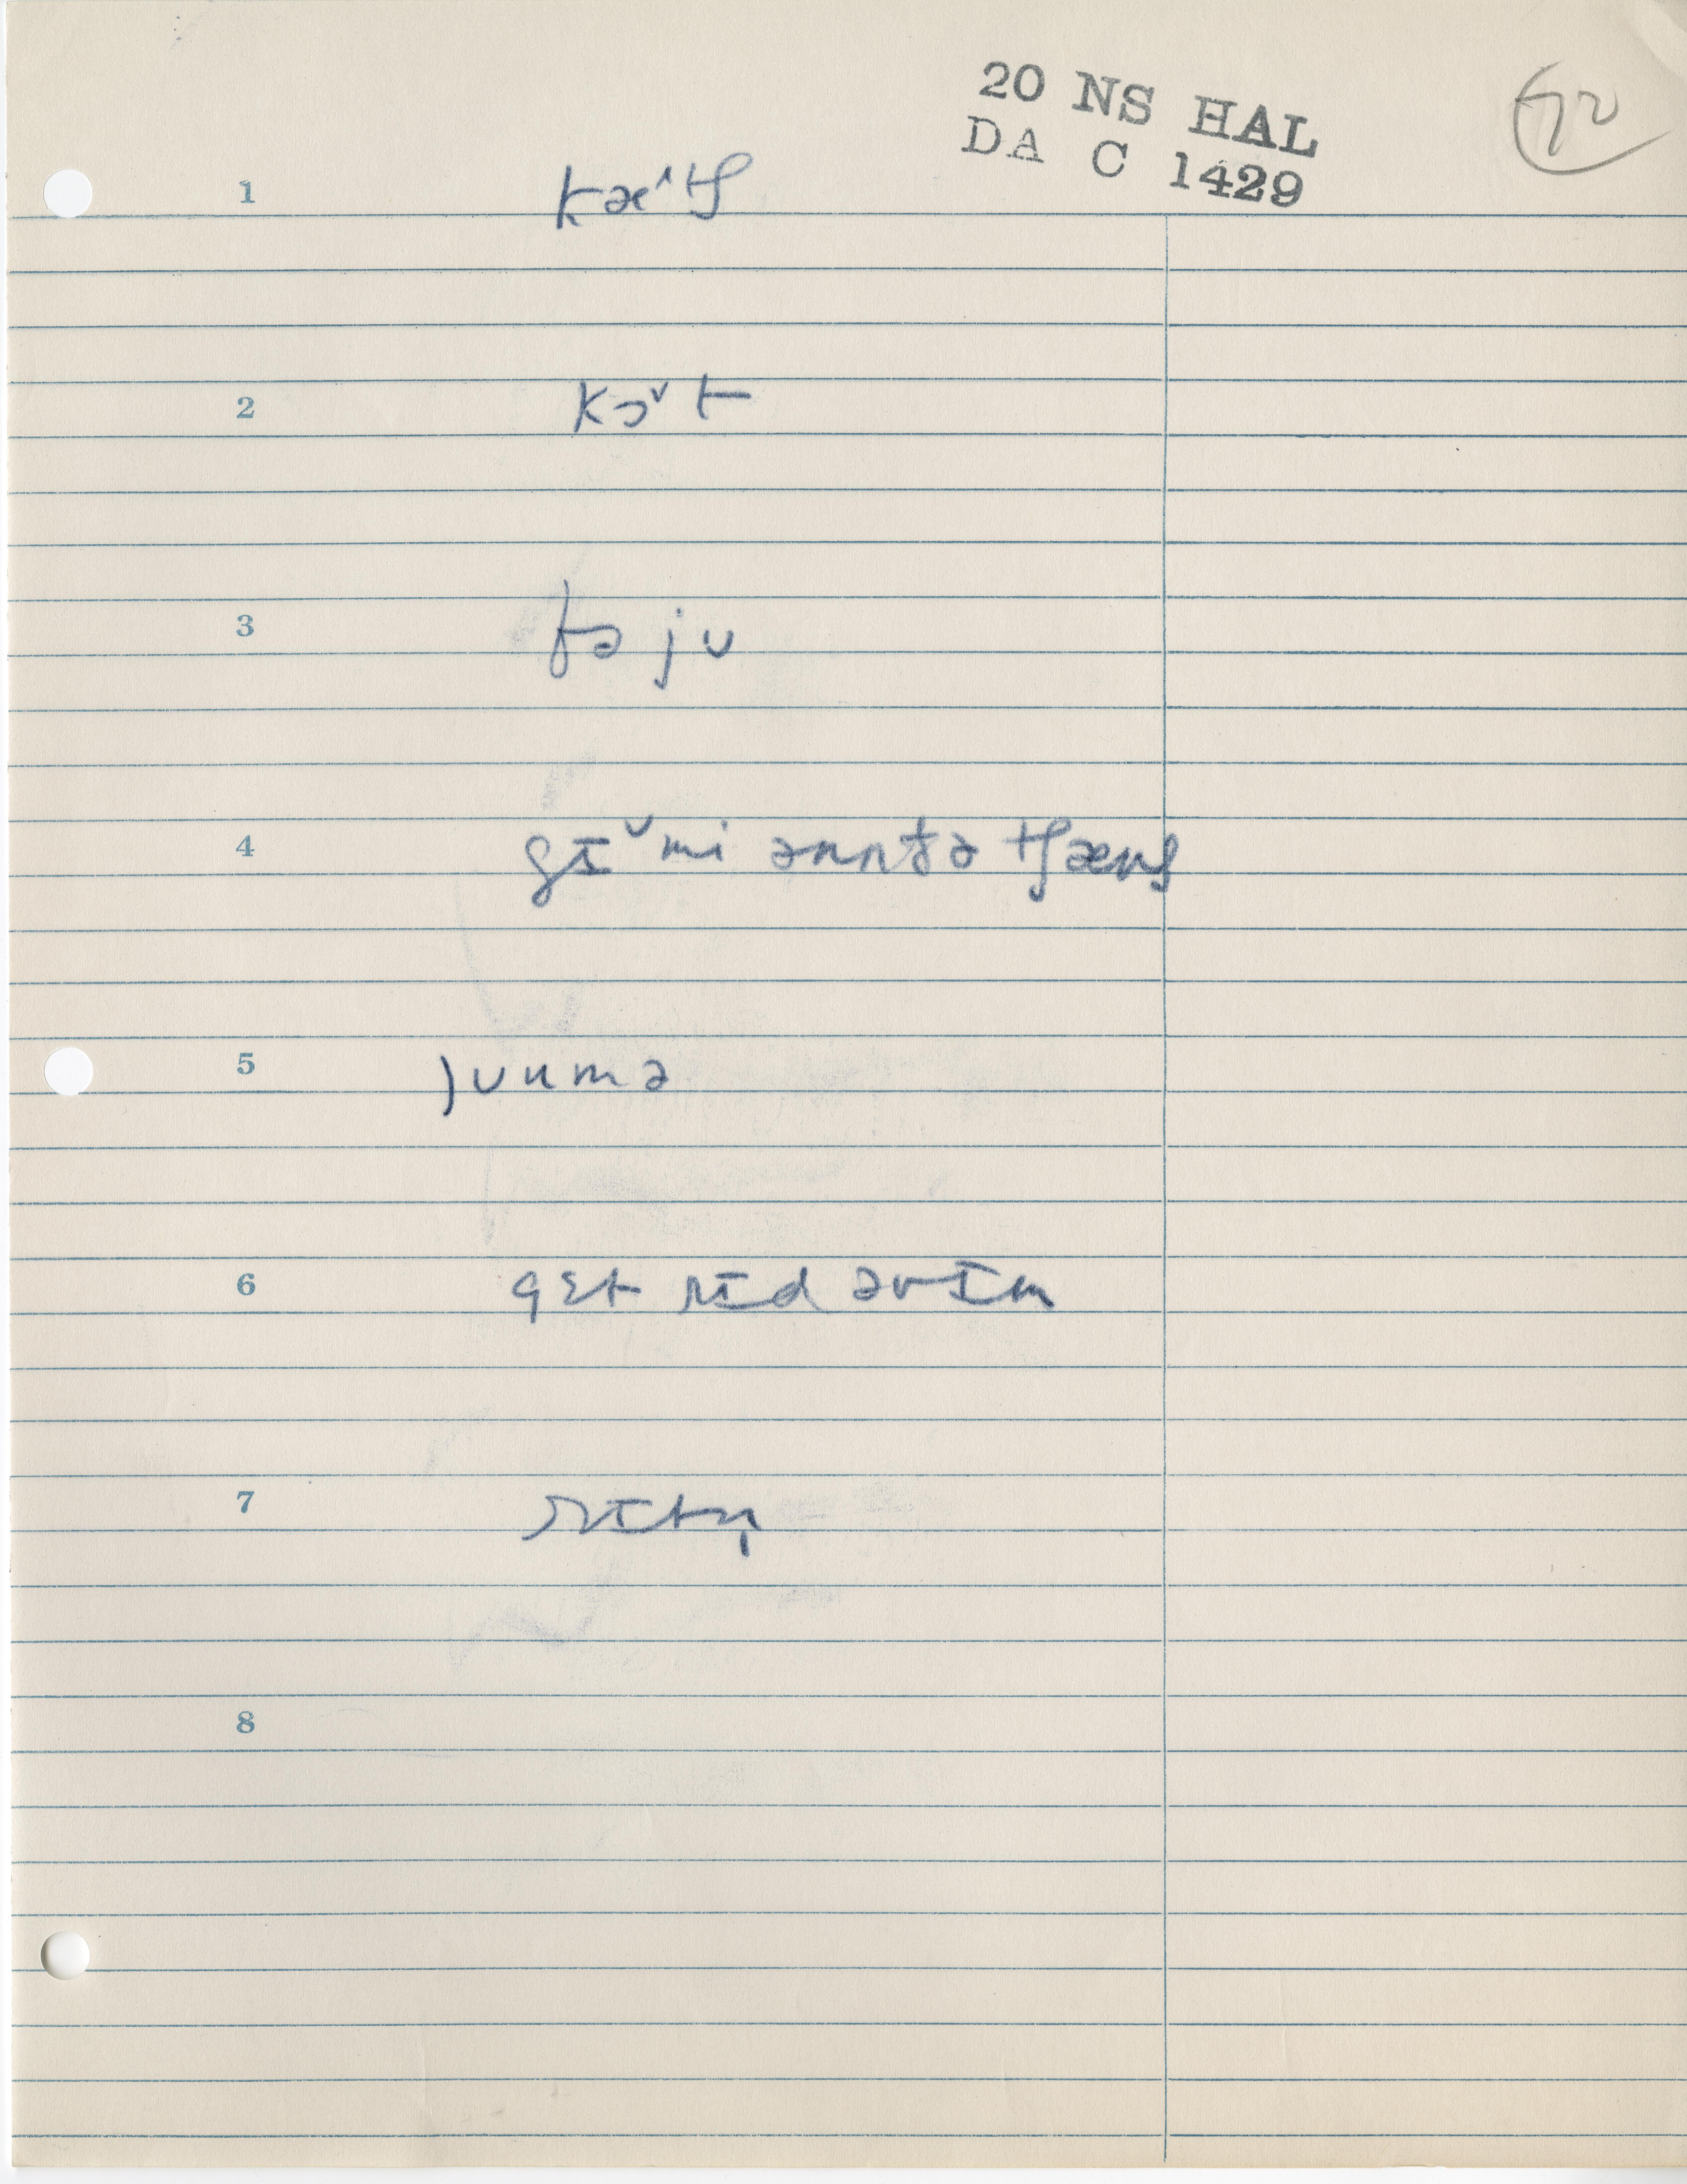 20 NS HAL
DA C 1429
72
1 kæ˄tʃ
2 kɔ˅t
3 fɚ ju
4 gɪ˅mi ənʌðə tʃæns
5 juumə
6 gɛt rɪd əvɪm
7 rɪtn̩
8